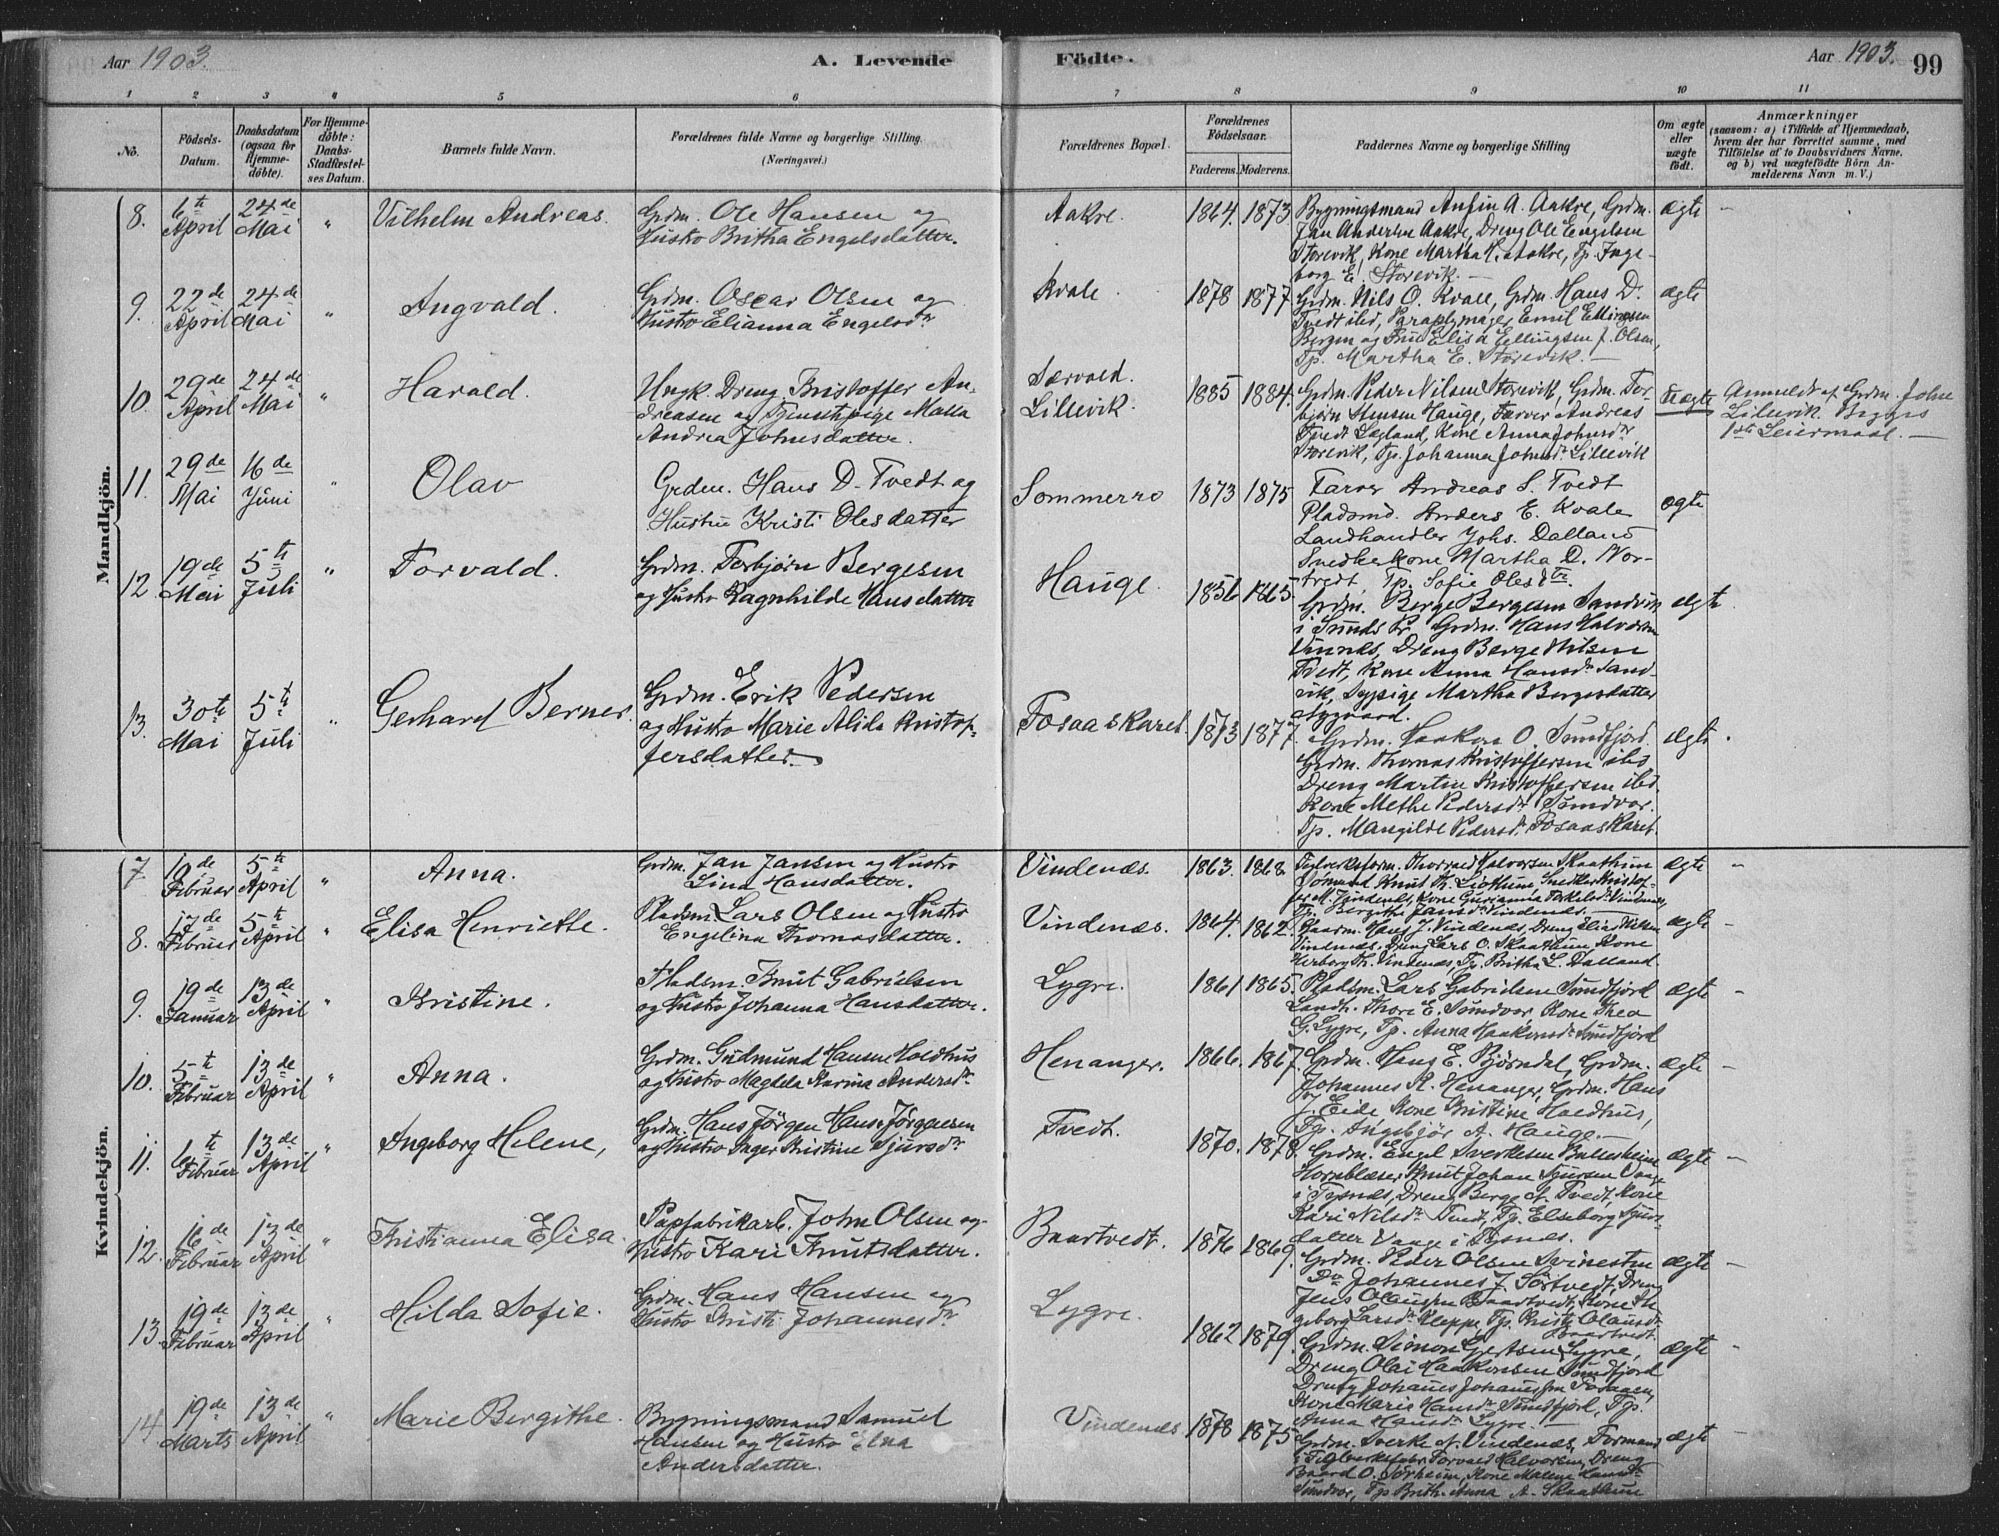 Aar 1903. A. Levende Födte. Aar 1903. 99
1 2 3 4 5 6 7 8 9 10 11
No. Födsels-Datum. Daabsdatum (ogsaa for Hjemme-döbte). For Hjemme-döbte: Daabs-Stadfæstel-ses Datum. Barnets fulde Navn. Forældrenes fulde Navne og borgerlige Stilling. (Næringsvei.) Forældrenes Bopæl. Forældrenes Födselsaar. Faderens. Moderens. Faddernes Navne og borgerlige Stilling Om ægte eller uægte födt. Anmærkninger
(saasom: a) i Tilfælde af Hjemmedaab, hvem der har forrettet samme, med Tilföielse af to Daabsvidners Navne, og b) ved uægtefödte Börn An-melderens Navn m. V.)
Mandkjön.
8. 6te April 24de Mai " Vilhelm Andreas. Grdm. Ole Hansen og
Hustro Britha Engelsdatter.
Aakre. 1864. 1873. Bygningsmand Anfin A. Aakre, Grdm.
Jan Andersen Aakre, Dreng Ole Engelsen
Storevik, Kone Martha H. Aakre, Tp. Inge-
borg E. Storevik.—
ægte —
9. 22de April 24de Mai " Ingvald. Grdm. Oscar Olsen og
Hustro Elianna Engelsdr
Kvale 1878 1877. Grdm. Nils O. Kvale, Grdm. Hans D.
Tvedt ibd, Paraplymager Emil Ellingsen
Bergen og Frue Elisa Ellingsen f. Olsen,
Tp. Martha E. Storevik.—
ægte
10. 29de April 24de Mai " Harald. Ungk. Dreng Kristoffer An-
dreasen og Tjenestpige Malla
Andrea Johnsdatter.
Særvold.
Lillevik. 1885 1884. Grdm. Peder Nilsen Storevik, Grdm. Tor-
bjørn Stensen Hauge, Farver Andreas
Tvedt Legland, Kone Anna Johnsdr
Storevik, Tp. Johanna Johnsdr Lillevik
Uægte Anmeldt af Grdm. John
Lillevik. Begges
1ste Leiermaal.—
11. 29de Mai 16de Juni " Olav Grdm. Hans D. Tvedt og
Hustru Kristi Olesdatter
Sommerro 1873 1875 Farver Andreas S. Tvedt
Pladsmd. Anders E. Kvale
Landhandler Johs. Dalland
Snedkerkone Martha D. Nor-
tvedt, Tp. Sofie Olesdtr.
ægte
12. 19de Mai 5te Juli " Torvald. Grdm. Torbjørn Bergesen
og Hustro Ragnhilde Hansdatter
Hauge. 1856. 1865. Grdm. Berge Bergesen Sandvik
i Sunds Pr. Grdm. Hans Halvorsen
Vinnes, Dreng Berge Nilsen
Tvedt, Kone Anna Hansdr Sand-
vik, Sypige Martha Bergesdatter
Nygaard.
ægte
13. 30te Mai 5te Juli " Gerhard Berner. Grdm. Erik Pedersen
og Hustro Marie Alida Kristop-
fersdatter.
Fosaaskaret. 1873 1877. Grdm. Haakon O. Sundfjord.
Grdm. Thomas Kristoffersen ibd
Dreng Martin Kristoffersen ibd.
Kone Methe Pedersdr Sundvor.
Tp. Mangilde Pedersdr Fosaaskaret.
ægte
Kvindekjön.
7 10de Februar 5te April " Anna. Grdm. Jan Jansen og Hustro
Lina Hansdatter.
Vindenæs. 1863. 1868. Teglverksform. Thorvald Halvorsen Skaathun
Sømand Knut Th. Liothun, Snedker Kristof-
fer M. Vindenes, Kone Gurianna Torkelsdr Vindenes,
Tp. Bergitha Jansdr Vindenes.—
ægte —
8. 17de Februar 5te April " Elisa Henriette. Pladsm. Lars Olsen og Hustro
Engelina Thomasdatter.
Vindenæs. 1864. 1862. Gaardm. Hans J. Vindenæs, Dreng Elias Nilsen
Vindenæs. Dreng Lars O. Skaathun Kone
Herborg Th. Vindenæs, Tp. Britha L. Dalland.
ægte —
9. 19de Januar 13de April " Kristine. Pladsm. Knut Gabrielsen
og Hustro Johanna Hansdatter.
Lygre. 1861 1865. Pladsm. Lars Gabrielsen Sundfjord
Landh. Thore E. Sundvor, Kone Thea
G. Lygre, Tp. Anna Haakonsdr Sundfjord
ægte —
10. 5te Februar 13de April " Anna. Grdm. Gudmund Hansen Holdhus
og Hustro Magdela Karina Andersdr.
Henanger. 1866. 1867. Grdm. Hans E. Bjørndal, Grdm.
Johannes K. Henanger, Grdm. Hans
J. Eide Kone Kristine Holdhus,
Tp. Ingebjør A. Hauge.—
ægte —
11. 6te Februar 13de April " Ingeborg Helene, Grdm. Hans Jörgen Hans Jörgensen
og Hustro Inger Kristine Sjursdr
Tvedt. 1870. 1878. Grdm. Engel Sverkesen Baldersheim
Hornblæser Knut Johan Sjursen Vaage
i Tysnes, Dreng Berge N. Tvedt, Kone
Kari Nilsdr Tvedt, Tp. Elseborg Sjurs-
datter Vaage i Tysnes.
ægte —
12. 16de Februar 13de April " Kristianna Elisa. Papfabrikarb. John Olsen og
Hustro Kari Knutsdatter.
Baartvedt. 1876 1869. Grdm. Peder Olsen Svinestin
Do Johannes J. Sörtvedt, Dreng
Jens Olausen Baartvedt, Kone In-
geborg Larsdr Kleppe, Tp. Kristi Olausdr
Baartvedt.
ægte —
13. 19de Februar 13de April " Hilda Sofie. Grdm. Hans Hansen og
Hustro Kristi Johannesdr
Lygre. 1862 1879. Grdm. Simon Gertsen Lygre,
Dreng Olai Haakonsen Sundfjord
Dreng Johanes Johanessen Fosaaen,
Kone Marie Hansdr Sundfjord, Tp.
Anna Hansdr Lygre.—
ægte —
14 19de Marts 13de April " Marie Bergithe. Bygningsmand Samuel
Hansen og Hustro Elna
Andersdatter.
Vindenæs 1878 1875 Grdm. Sverke N. Vindenæs, Formand
i Teglverksfabr. Torvald Halvorsen, Dreng
Baard O. Sörheim, Kone Malene Hansdr
Sundvor, Tp Brith. Anna A. Skaathun
ægte —